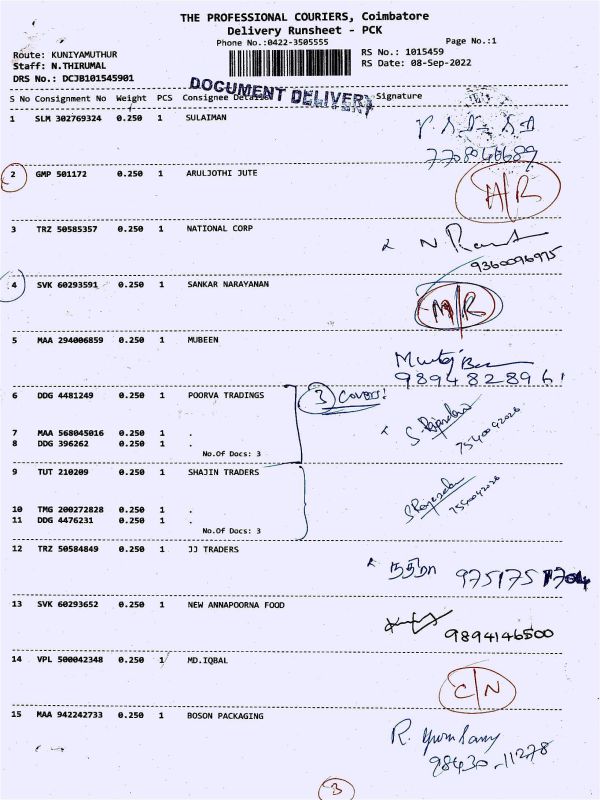 THE PROFESSIONAL COURIERS, Coimbatore
Delivery Runsheet - PCK
Phone No.:0422-3505555
Page No.:1
Route: KUNIYAMUTHUR
RS No.: 1015459
Staff: N.THIRUMAL
RS Date: 08-Sep-2022
DRS No.: DCJB101545901
DOCUMENT DELIVERY
S No Consignment No Weight PCS Consignee Details Signature
1 SLM 302769324 0.250 1 SULAIMAN
7708940689
2 GMP 501172 0.250 1 ARULJOTHI JUTE
3 TRZ 50585357 0.250 1 NATIONAL CORP
9360096975
4 SVK 60293591 0.250 1 SANKAR NARAYANAN
5 MAA 294006859 0.250 1 MUBEEN
9894828961
6 DDG 4481249 0.250 1 POORVA TRADINGS 3 COVERS!
7 MAA 568045016 0.250 1 .
8 DDG 396262 0.250 1 .
7540042026
No.Of Docs: 3
9 TUT 210209 0.250 1 SHAJIN TRADERS
7540042026
10 TMG 200272828 0.250 1 .
11 DDG 4476231 0.250 1 .
No.Of Docs: 3
12 TRZ 50584849 0.250 1 JJ TRADERS
9751751704
13 SVK 60293652 0.250 1 NEW ANNAPOORNA FOOD
9894146500
14 VPL 500042348 0.250 1 MD.IQBAL
C/N
15 MAA 942242733 0.250 1 BOSON PACKAGING
98430-11278
3